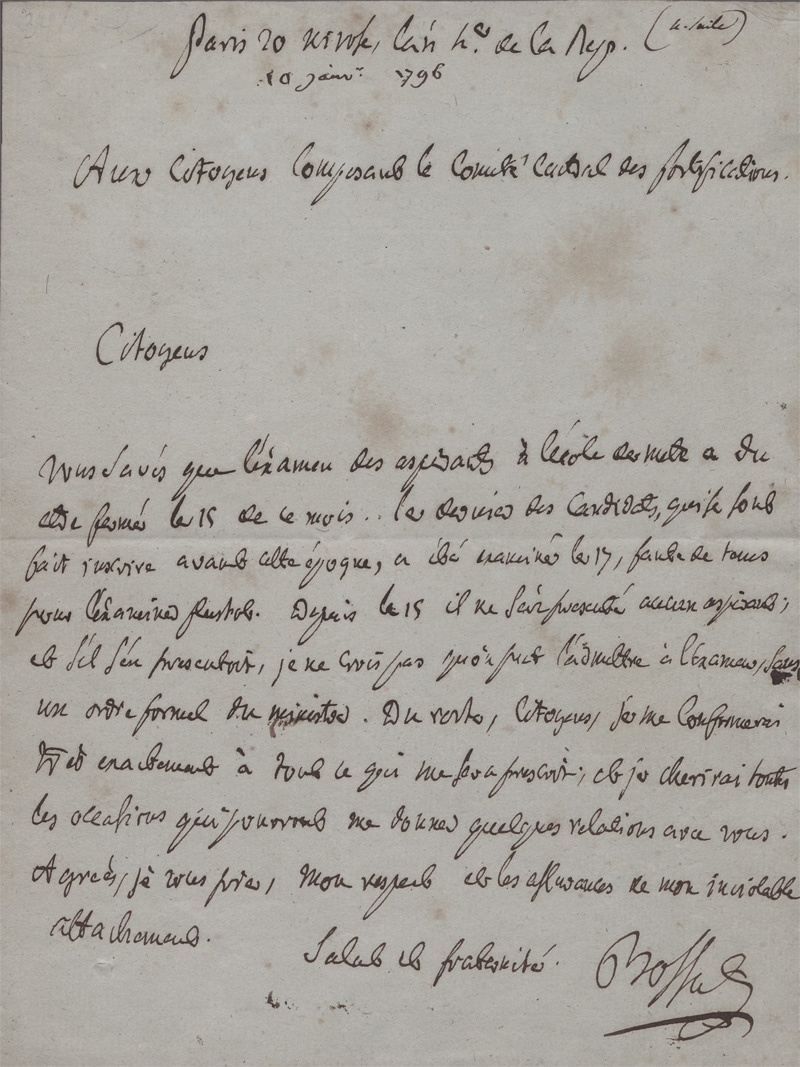 Paris 20 nivose, l'an 4.e de la Rep.
10 janv. 1796
Aux Citoyens Composant le Comité Central des fortifications.
Citoyens
Vous savés que l'éxamen des aspirants à l'école de metz a du
etre fermé le 15 de ce mois. le dernier des Candidats, qui se sont
fait inscrire avant cette époque, a été examiné le 17, faute de tems
pour l'éxaminer plustot. Depuis le 15 il ne s'est présenté aucun aspirant;
et s'il s'en présentoit, je ne crois pas qu'on put l'admettre à l'éxamen, sans
un ordre formel du ministre. Du reste, Citoyens, je me conformerai
exactement à tout ce qui me sera prescrit; et je cherirai toutes
les occasions qui pourront me donner quelques relations avec vous.
Agreés, je vous prie, mon respect et les assurances de mon inviolable
attachement.
Salut et fraternité. Bossut